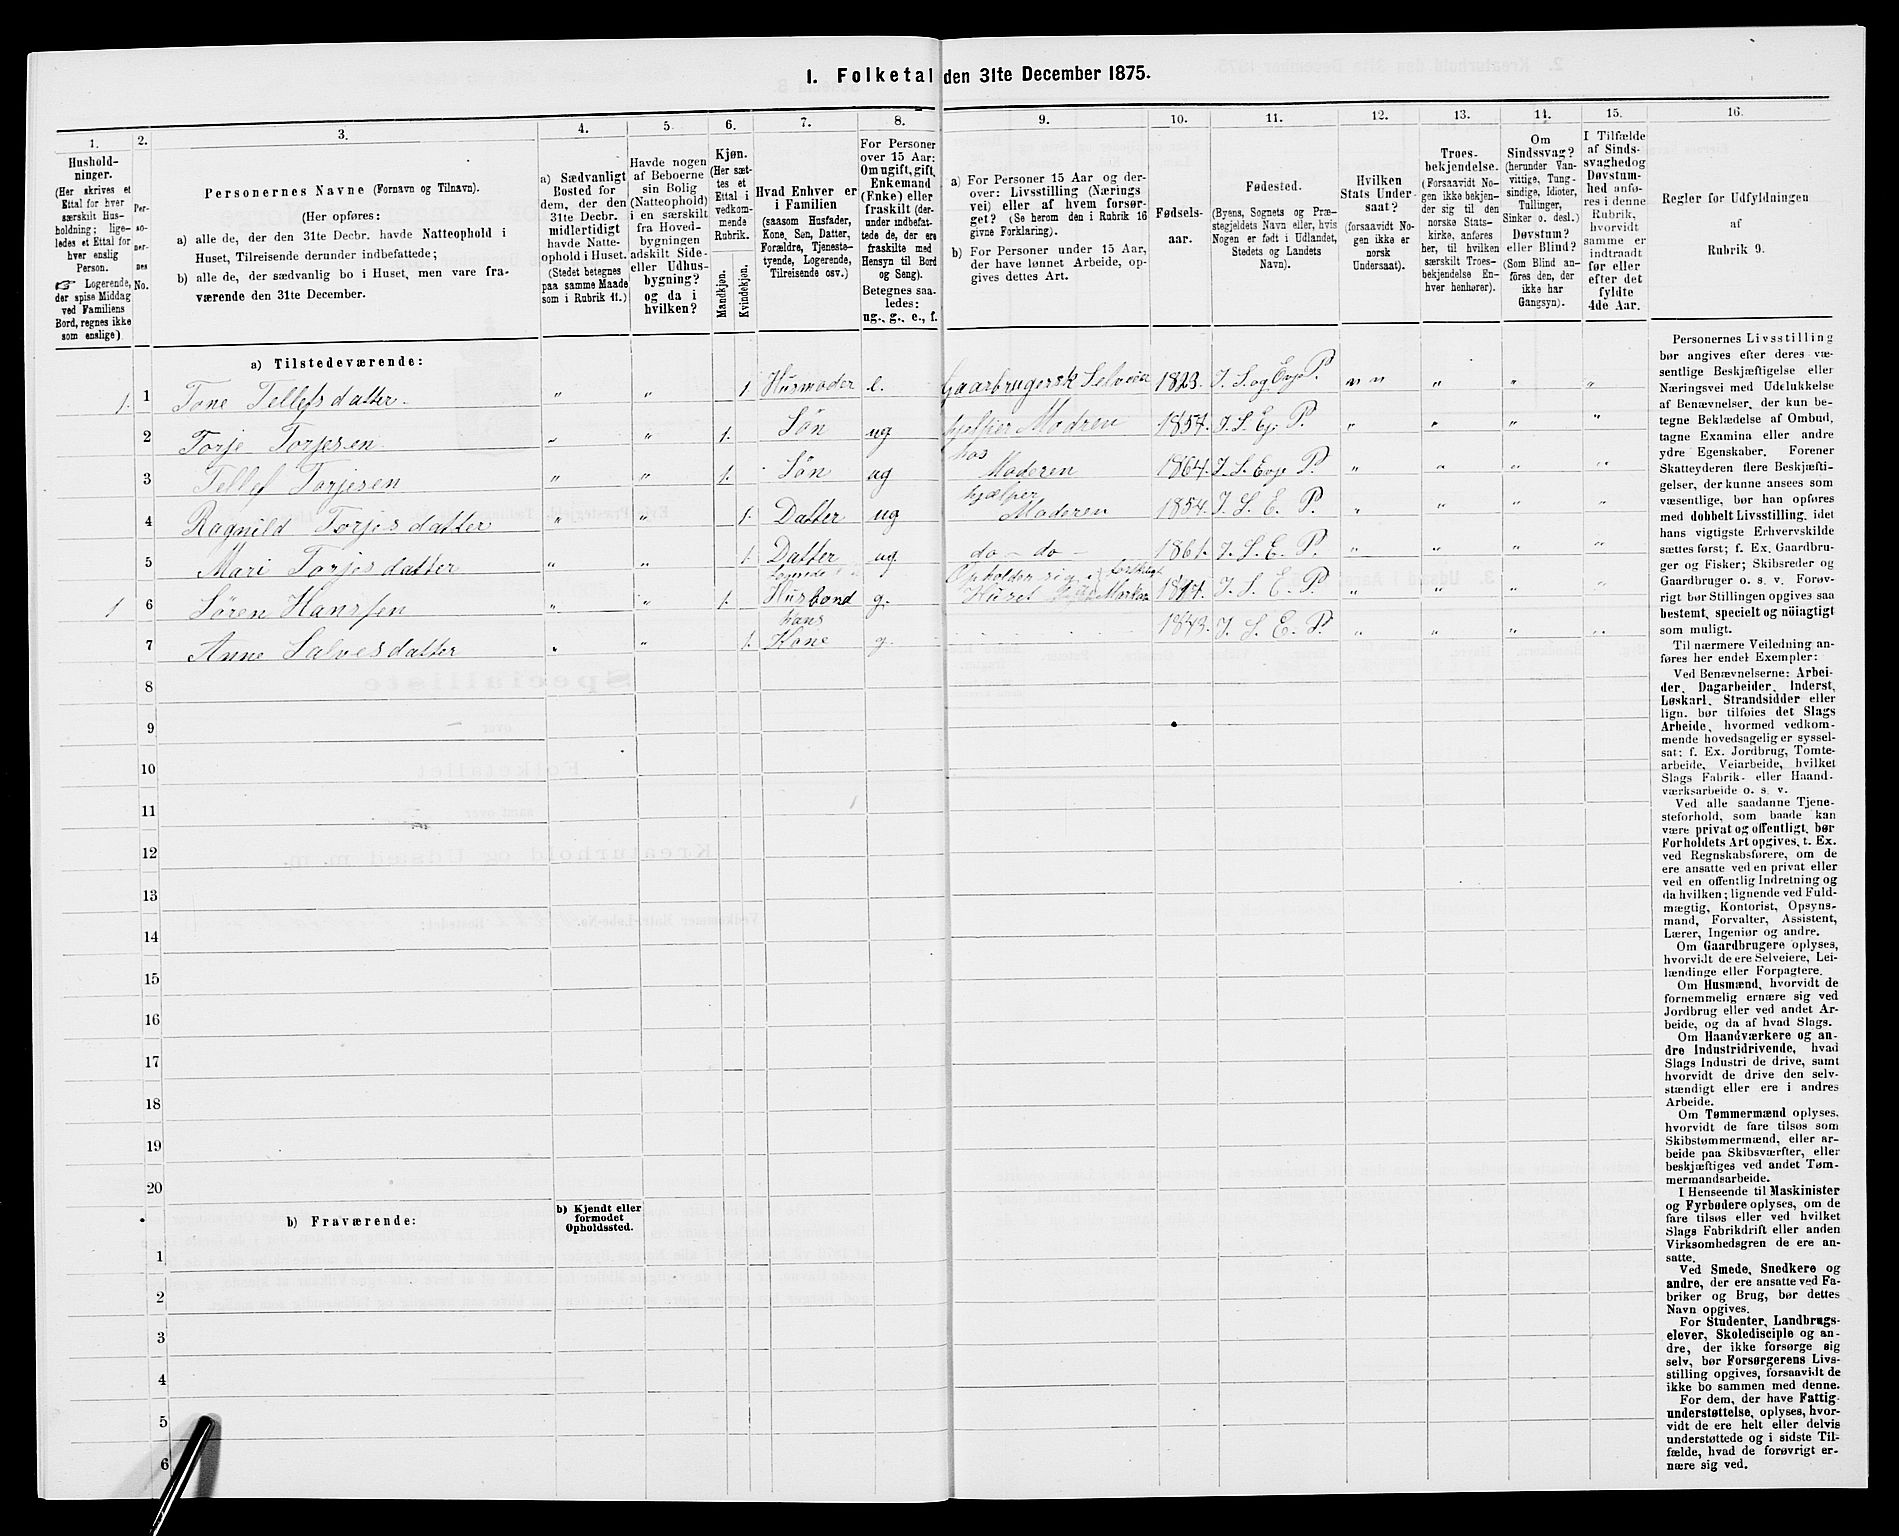 1. Folketal den 31te December 1875.
1.
Hushold-
ninger.
(Her skrives et
Ettal for hver
særskilt Hus-
holdning; lige-
ledes et Ettal for
hver enslig
Person.
☞ Logerende,
der spise Middag
ved Familiens
Bord, regnes ikke
som enslige).
2.
Per-
so-
ner-
nes
No.
3.
Personernes Navne (Fornavn og Tilnavn).
(Her opføres:
a) alle de, der den 31te Decbr. havde Natteophold i
Huset, Tilreisende derunder indbefattede;
b) alle de, der sædvanlig bo i Huset, men vare fra-
værende den 31te December.
4.
a) Sædvanligt
Bosted for
dem, der den
31te Decbr.
midlertidigt
havde Natte-
ophold i Huset.
(Stedet betegnes
paa samme Maade
som i Rubrik 11.)
5.
Havde nogen
af Beboerne
sin Bolig
(Natteophold)
i en særskilt
fra Hoved-
bygningen
adskilt Side-
eller Udhus-
bygning?
og da i
hvilken?
6.
Kjøn.
(Her sæt-
tes et
Ettal i
vedkom-
mende
Rubrik.
Mandkjøn.
Kvindekjøn.
7.
Hvad Enhver er
i Familien
(saasom Husfader,
Kone, Søn, Datter,
Forældre, Tjeneste-
tyende, Logerende,
Tilreisende osv.)
8.
For Personer
over 15 Aar:
Om ugift, gift,
Enkemand
(Enke) eller
fraskilt (der-
under indbefat-
tede de, der ere
fraskilte med
Hensyn til Bord
og Seng).
Betegnes saa-
ledes:
ug., g., e., f.
9.
a) For Personer 15 Aar og der-
over: Livsstilling (Nærings-
vei) eller af hvem forsør-
get? (Se herom den i Rubrik 16
givne Forklaring).
b) For Personer under 15 Aar,
der have lønnet Arbeide, op-
gives dettes Art.
10.
Fødsels-
aar.
11.
Fødested.
(Byens, Sognets og Præ-
stegjeldets Navn eller, hvis
Nogen er født i Udlandet,
Stedets og Landets
Navn).
12.
Hvilken
Stats Under-
saat?
(forsaavidt No-
gen ikke er
norsk
Undersaat).
13.
Troes-
bekjendelse.
(Forsaavidt No-
gen ikke bekjen-
der sig til den
norske Stats-
kirke, anføres
her, til hvilken
særskilt Troes-
bekjendelse En-
hver henhører).
14.
Om
Sindssvag?
(herunder Van-
vittige, Tung-
sindige, Idioter,
Tullinger,
Sinker o. desl.)
Døvstum?
eller Blind?
(Som Blind an-
føres den, der
ikke har
Gangsyn).
15.
I Tilfælde
af Sinds-
svaghed og
Døvstum-
hed anfø-
res i denne
Rubrik,
hvorvidt
samme er
indtraadt
før eller
efter det
fyldte
4de Aar.
16.
Regler for Udfyldningen
af
Rubrik 9.
a) Tilstedeværende:
1. 1 Tone Tellefsdatter. " " 1 Husmoder e. Gaarbrugersk Selveier 1823. I. S. og Evje P. " " " " "
2 Torje Torjesen " " 1. Søn ug hjelper Modren 1857. I. S. Ej. P. " " " "
3 Tellef Torjesen " " 1. Søn ug hos Moderen 1864. I. S. Evje P. " " " "
4 Ragnild Torjesdatter " " 1. Datter ug hjælper Moderen 1854. I. S. E. P. " " " "
5 Mari Torjesdatter " " 1 Datter ug. do - do - 1861. I. S. E. P. " " " "
1 6 Søren Hanssen " " 1. Husbond g. Opholder sig Huset 1817. I. S. E. P. " " " "
7 Anne Salvesdatter " " 1. hans Kone g. 1843. I. S. E. P. " " " "
8
9
10
11
12
13
14
15
16
17
18
19
20
b) Fraværende:
b) Kjendt eller
formodet
Opholdssted.
1
2
3
4
5
6
Personernes Livsstilling
bør angives efter deres væ-
sentlige Beskjæftigelse eller
Næringsvei med Udelukkelse
af Benævnelser, der kun be-
tegne Beklædelse af Ombud,
tagne Examina eller andre
ydre Egenskaber. Forener
Skatteyderen flere Beskjæfti-
gelser, der kunne ansees som
væsentlige, bør han opføres
med dobbelt Livsstilling, idet
hans vigtigste Erhvervskilde
sættes først; f. Ex. Gaardbru-
ger og Fisker; Skibsreder og
Gaardbruger o. s. v. Forøv-
rigt bør Stillingen opgives saa
bestemt, specielt og nöiagtigt
som muligt.
Til nærmere Veiledning an-
føres her endel Exempler:
Ved Benævnelserne: Arbei-
der, Dagarbeider, Inderst,
Løskarl, Strandsidder eller
lign. bør tilføies det Slags
Arbeide, hvormed vedkom-
mende hovedsagelig er syssel-
sat; f. Ex. Jordbrug, Tomte-
arbeide, Veiarbeide, hvilket
Slags Fabrik- eller Haand-
værksarbeide o. s. v.
Ved alle saadanne Tjene-
steforhold, som baade kan
være privat og offentligt, bør
Forholdets Art opgives, t. Ex.
ved Regnskabsførere, om de
ere ansatte ved en privat eller
ved en offentlig Indretning og
da hvilken; lignende ved Fuld-
mægtig, Kontorist, Opsyns-
mand, Forvalter, Assistent,
Lærer, Ingeniør og andre.
Om Gaardbrugere oplyses,
hvorvidt de ere Selveiere, Lei-
lændinge eller Forpagtere.
Om Husmænd, hvorvidt de
fornemmelig ernære sig ved
Jordbrug eller ved andet Ar-
beide, og da af hvad Slags.
Om Haandværkere og an-
dre Industridrivende, hvad
Slags Industri de drive, samt
hvorvidt de drive den selv-
stændigt eller ere i andres
Arbeide.
Om Tømmermænd oplyses,
hvorvidt de fare tilsøs som
Skibstømmermænd, eller ar-
beide paa Skibsværfter, eller
beskjæftiges ved andet Tøm-
mermandsarbeide.
I Henseende til Maskinister
og Fyrbødere oplyses, om de
fare tilsøs eller ved hvilket
Slags Fabrikdrift eller anden
Virksomhedsgren de ere an-
satte.
Ved Smede, Snedkere og
andre, der ere ansatte ved Fa-
briker og Brug, bør dettes
Navn opgives.
For Studenter, Landbrugs-
elever, Skoledisciple og an-
dre, der ikke forsørge sig
selv, bør Forsørgerens Livs-
stilling opgives, forsaavidt de
ikke bo sammen med denne.
For dem, der have Fattig-
understøttelse, oplyses, hvor-
vidt de ere helt eller delvis
understøttede og i sidste Til-
fælde, hvad de forøvrigt er-
nære sig ved.